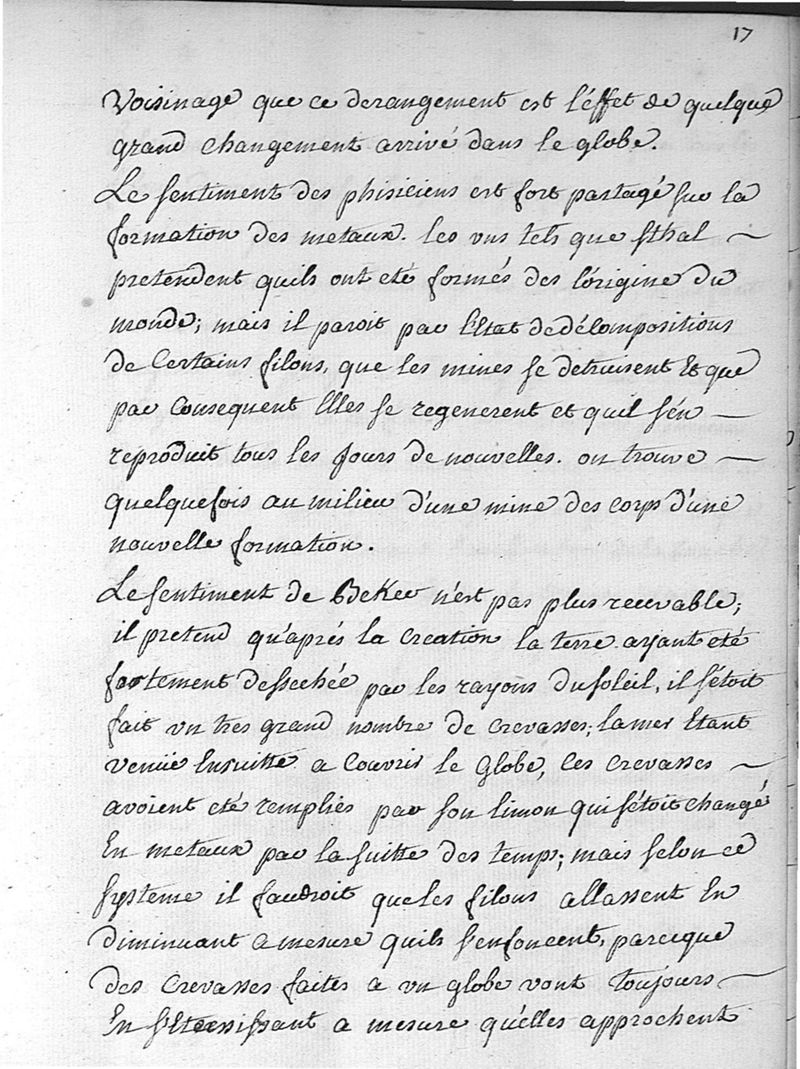 17
Voisinage que ce derangement est l'éffet de quelque
grand changement arrivé dans le globe.
Le sentiment des phisiciens est fort partagé sur la
formation des metaux. les vns tels que sthal
pretendent quils ont eté formés des lórigine du
monde; mais il paroit par l'Etat de décompositions
de Certains filons, que les mines se detruisent Et que
par Consequent Elles se regenerent et quil s'én
reproduit tous les Jours de nouvelles. on trouve
quelquefois au milieu d'une mine des corps d'une
nouvelle formation.
Le sentiment de BeKer n'est pas plus recevable;
il pretend qu'aprés la creation la terre ayant eté
fortement dessechée par les rayons du soleil, il s'étoit
fait vn tres grand nombre de crevasses; la mer Etant
venüe Ensuitte a Couvrir le Globe, les crevasses
avoient eté remplies par son limon qui s'étoit changé
En metaux par la suitte des temps; mais selon ce
systeme il faudroit que les filons allassent En
diminuant a mesure quils s'enfoncent, parceque
des Crevasses faites a vn globe vont toujours
En s'Etrecissant a mesure qu'elles approchent